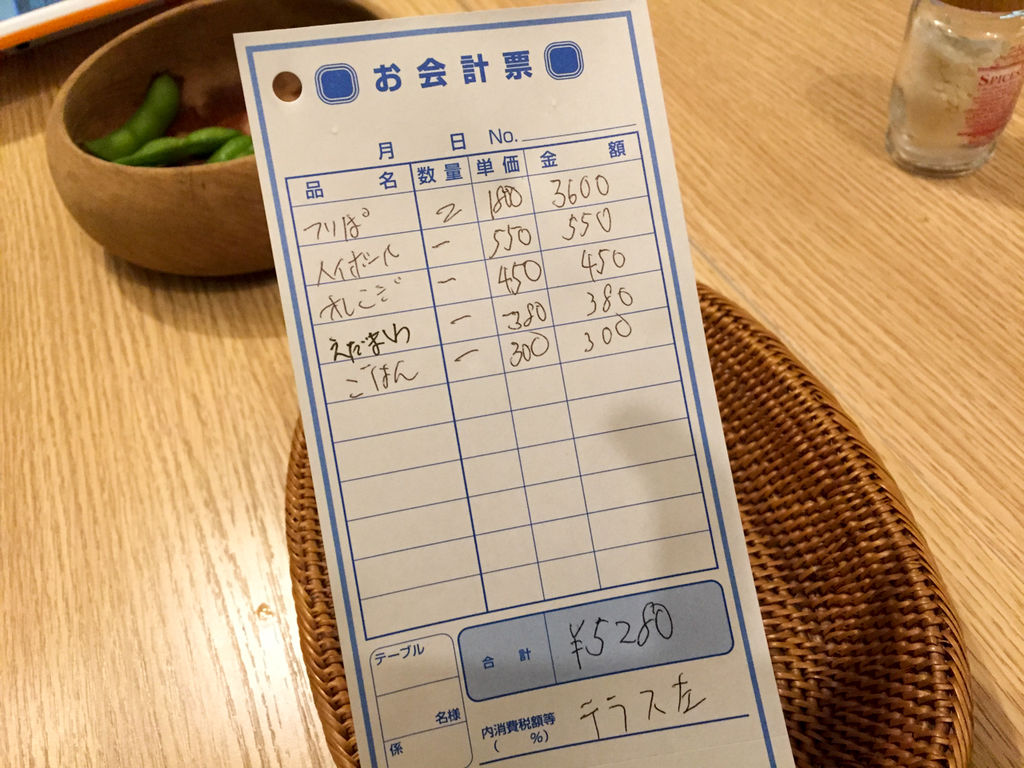 お会計票
月 日 No.
品名 数量 単価 金額
フリぱ° 2 1800 3600
ハイボール 一 550 550
オレンジ 一 450 450
えだまめ 一 380 380
ごはん 一 300 300
合計 ¥5280
テーブル
名様
係
内消費税額等 テラス左
( %)
SPICE